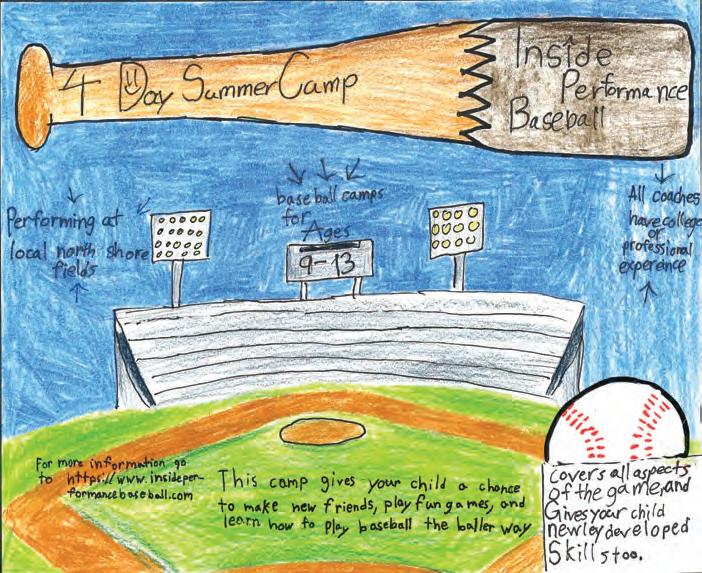 4 Day Summer Camp
Inside
Performance
Baseball
Performing at
local north shore
fields
baseball camps
for
Ages
9-13
All coaches
have college
or
professional
experence
For more information go
to https://www.insideper-
formancebaseball.com
This camp gives your child a chance
to make new friends, play fun games, and
learn how to play baseball the baller way
Covers all aspects
of the game, and
Gives your child
newley developed
Skills too.